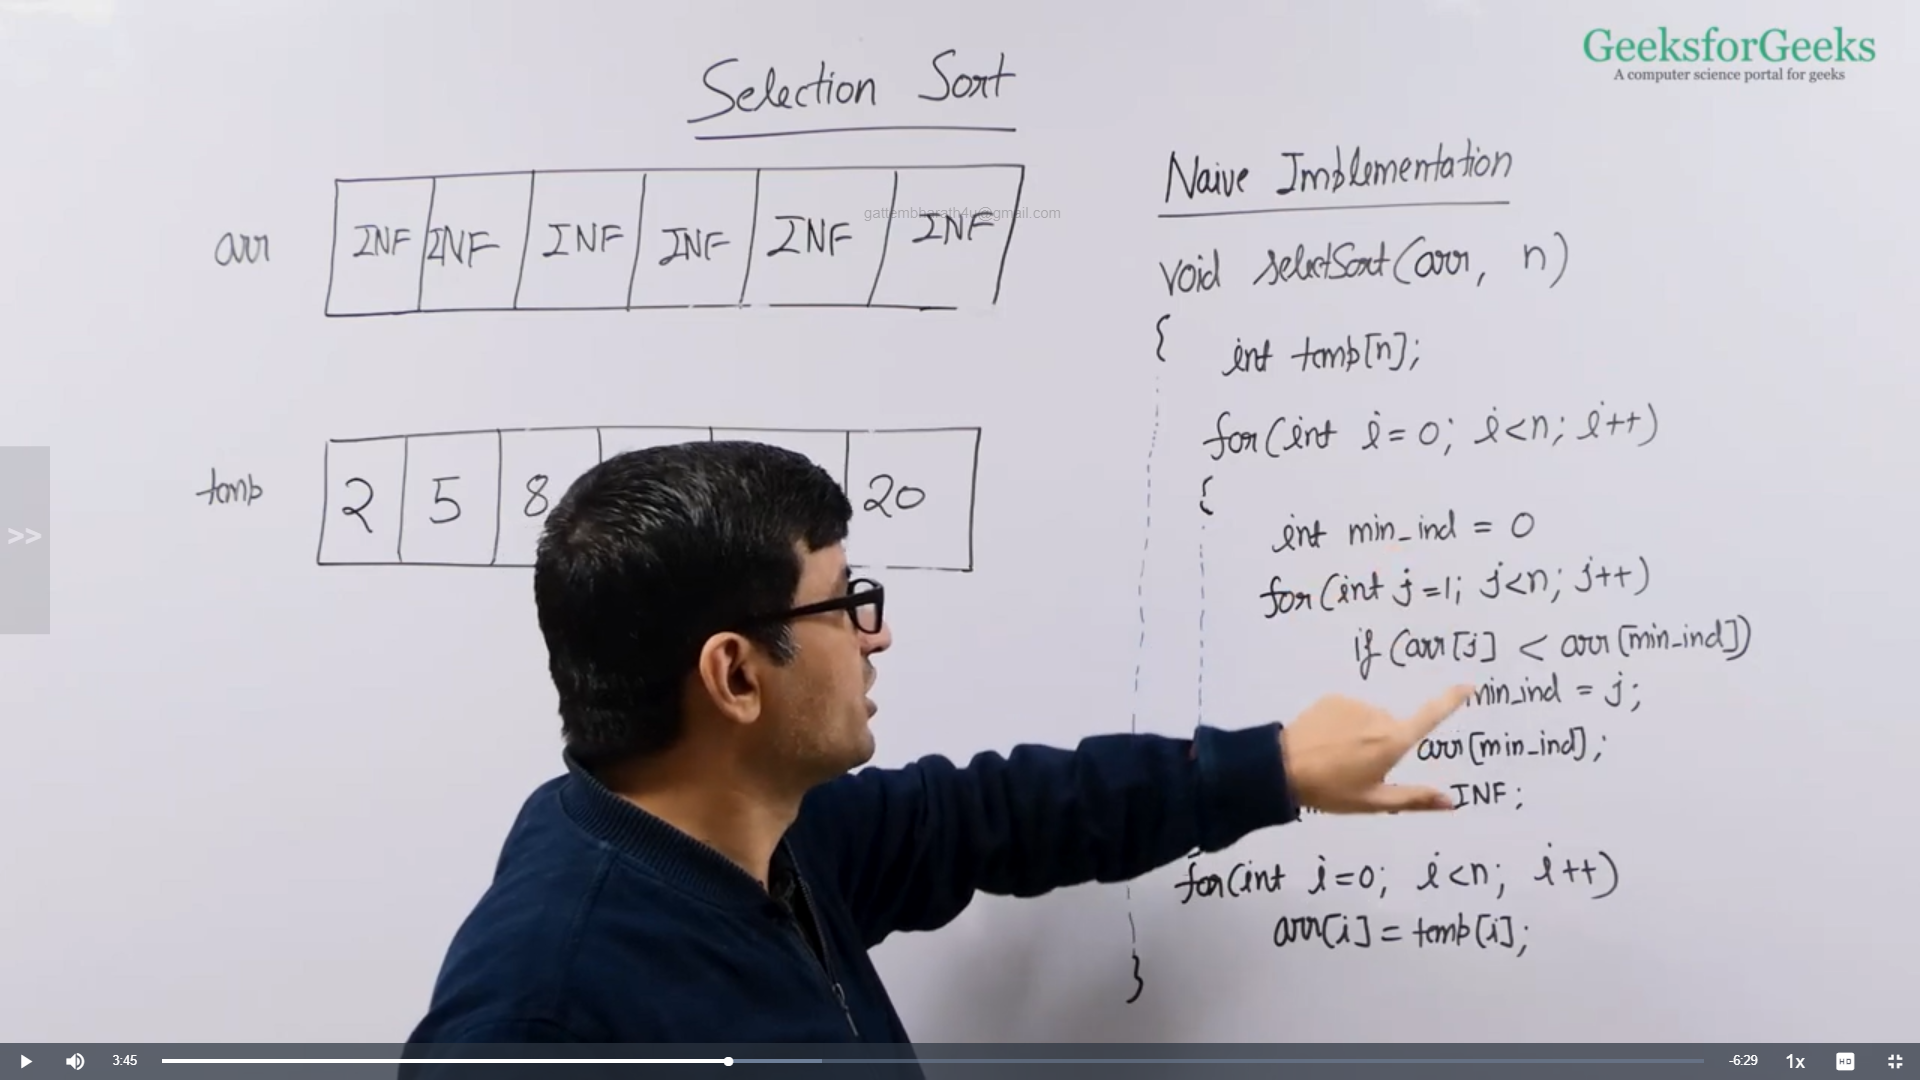 GeeksforGeeks
A computer science portal for geeks
Selection Sort
arr
INF INF INF INF INF INF
gattembharath4u@gmail.com
temp
2 5 8 20
Naive Implementation
void selectSort(arr, n)
{
int temp[n];
for(int i=0; i<n; i++)
{
int min_ind = 0
for(int j=1; j<n; j++)
if (arr[j] < arr[min_ind])
min_ind = j;
arr[min_ind];
INF;
for(int i=0; i<n; i++)
arr[i] = temp[i];
}
>>
3:45
-6:29
1x
HD